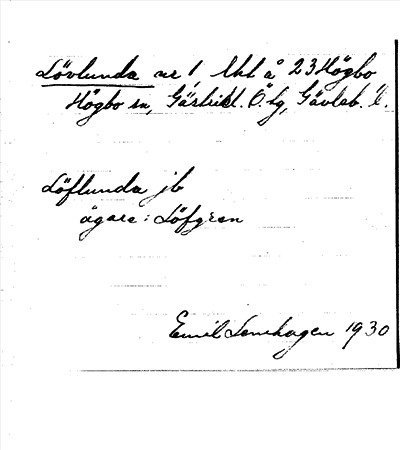 Lövlunda nr 1, Uht å 23 Högbo
Högbo sn, Gästrikl. Ö. tg, Gävleb. l.
Löflunda jb
ägare: Löfgren
Emil Lenhagen 1930